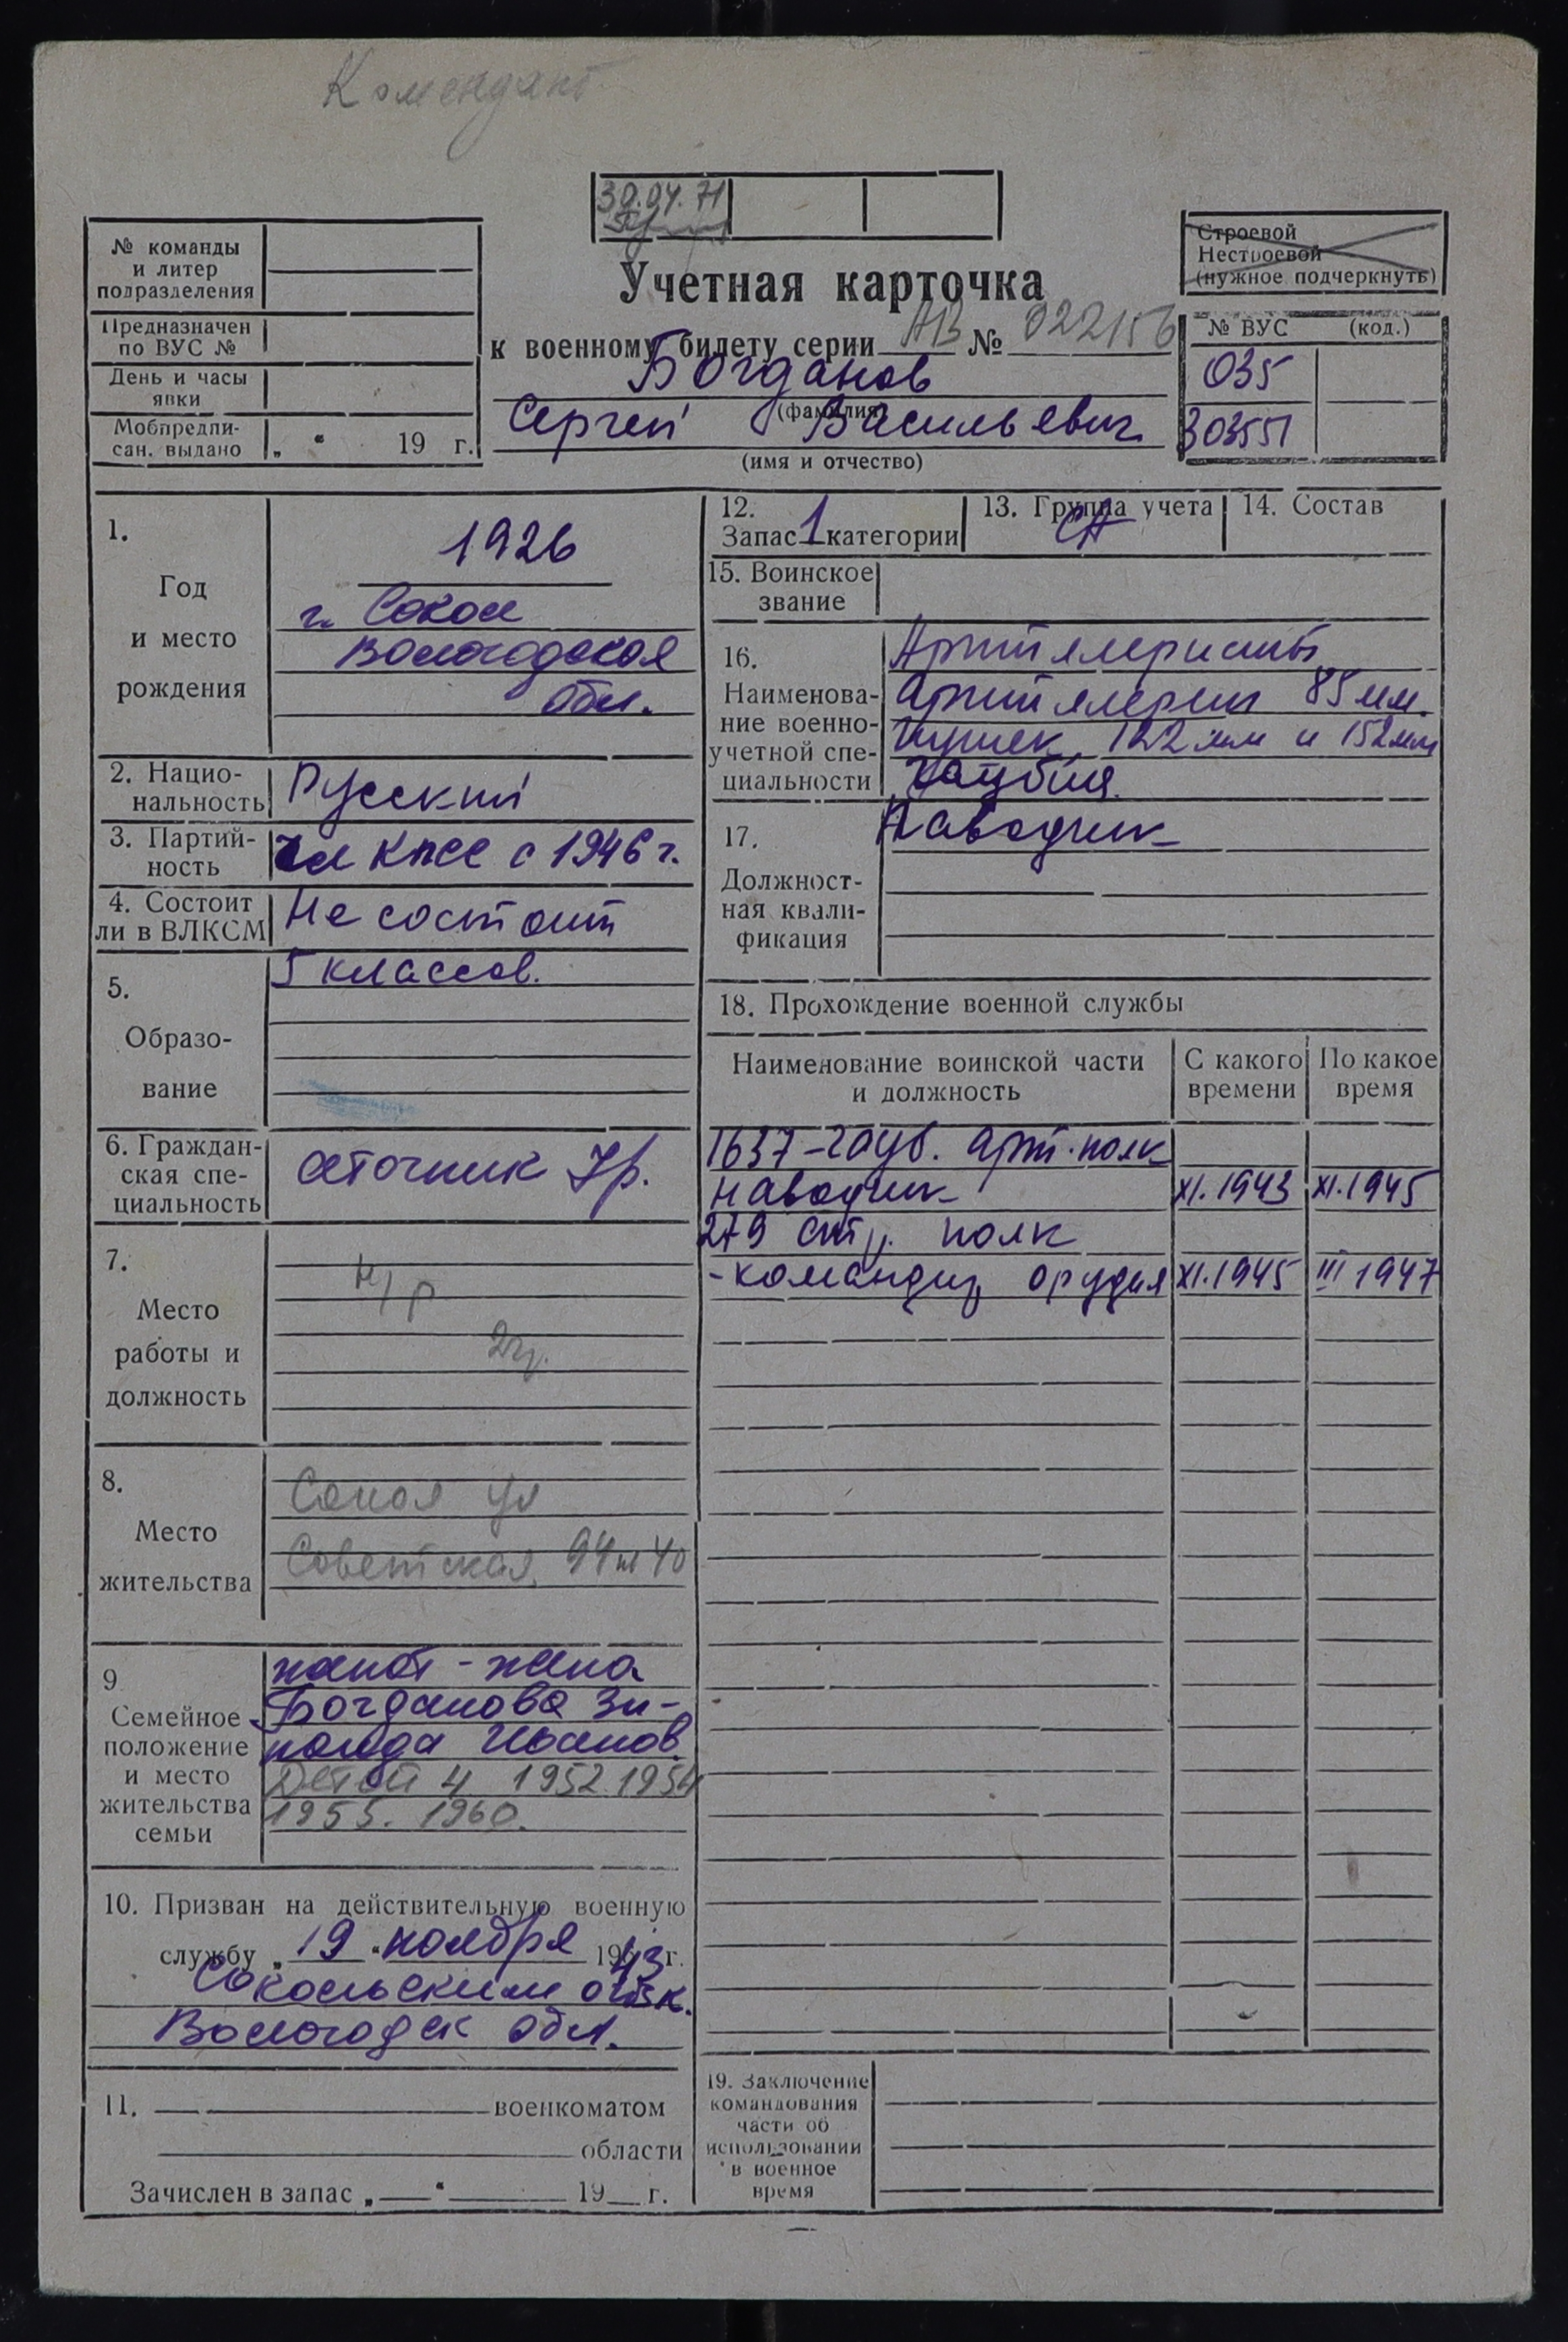 Комендант
30.04.71
№ команды
и литер
подразделения
Предназначен
по ВУС №
День и часы
явки
Мобпредпи-
сан. выдано „ “ 19 г.
Строевой
Нестроевой
(нужное подчеркнуть)
Учетная карточка
к военному билету серии АВ № 022156
Богданов
(фамилия)
Сергей Васильевич
(имя и отчество)
№ ВУС (код.)
035
303551
1.
Год
и место
рождения
1926
г. Сокол
Вологодская
обл.
2. Нацио-
нальность
Русский
3. Партий-
ность
Чл КПСС с 1946 г.
4. Состоит
ли в ВЛКСМ
Не состоит
5.
Образо-
вание
5 классов.
6. Граждан-
ская спе-
циальность
сеточник 7р.
7.
Место
работы и
должность
н/р
2гр.
8.
Место
жительства
Сокол ул
Советская 94 40
9
Семейное
положение
и место
жительства
семьи
женат - жена
Богданова Зи-
наида Иванов
Детей 4 1952 1954
1955. 1960.
10. Призван на действительную военную
службу „19“ ноября 1943 г.
Сокольским ОГВК.
Вологодск обл.
11. военкоматом
области
Зачислен в запас „ “ 19 г.
12.
Запас 1 категории
13. Группа учета
СА
14. Состав
15. Воинское
звание
16.
Наименова-
ние военно-
учетной спе-
циальности
Артиллеристы
артиллерии 85 мм.
пушек, 122 мм и 152 мм
гаубиц.
17.
Должност-
ная квали-
фикация
Наводчик
18. Прохождение военной службы
Наименование воинской части
и должность
С какого
времени
По какое
время
1637-гауб. арт. полк
наводчик XI.1943 XI.1945
279 стр. полк
-командир орудия XI.1945 III 1947
19. Заключение
командования
части об
использовании
в военное
время